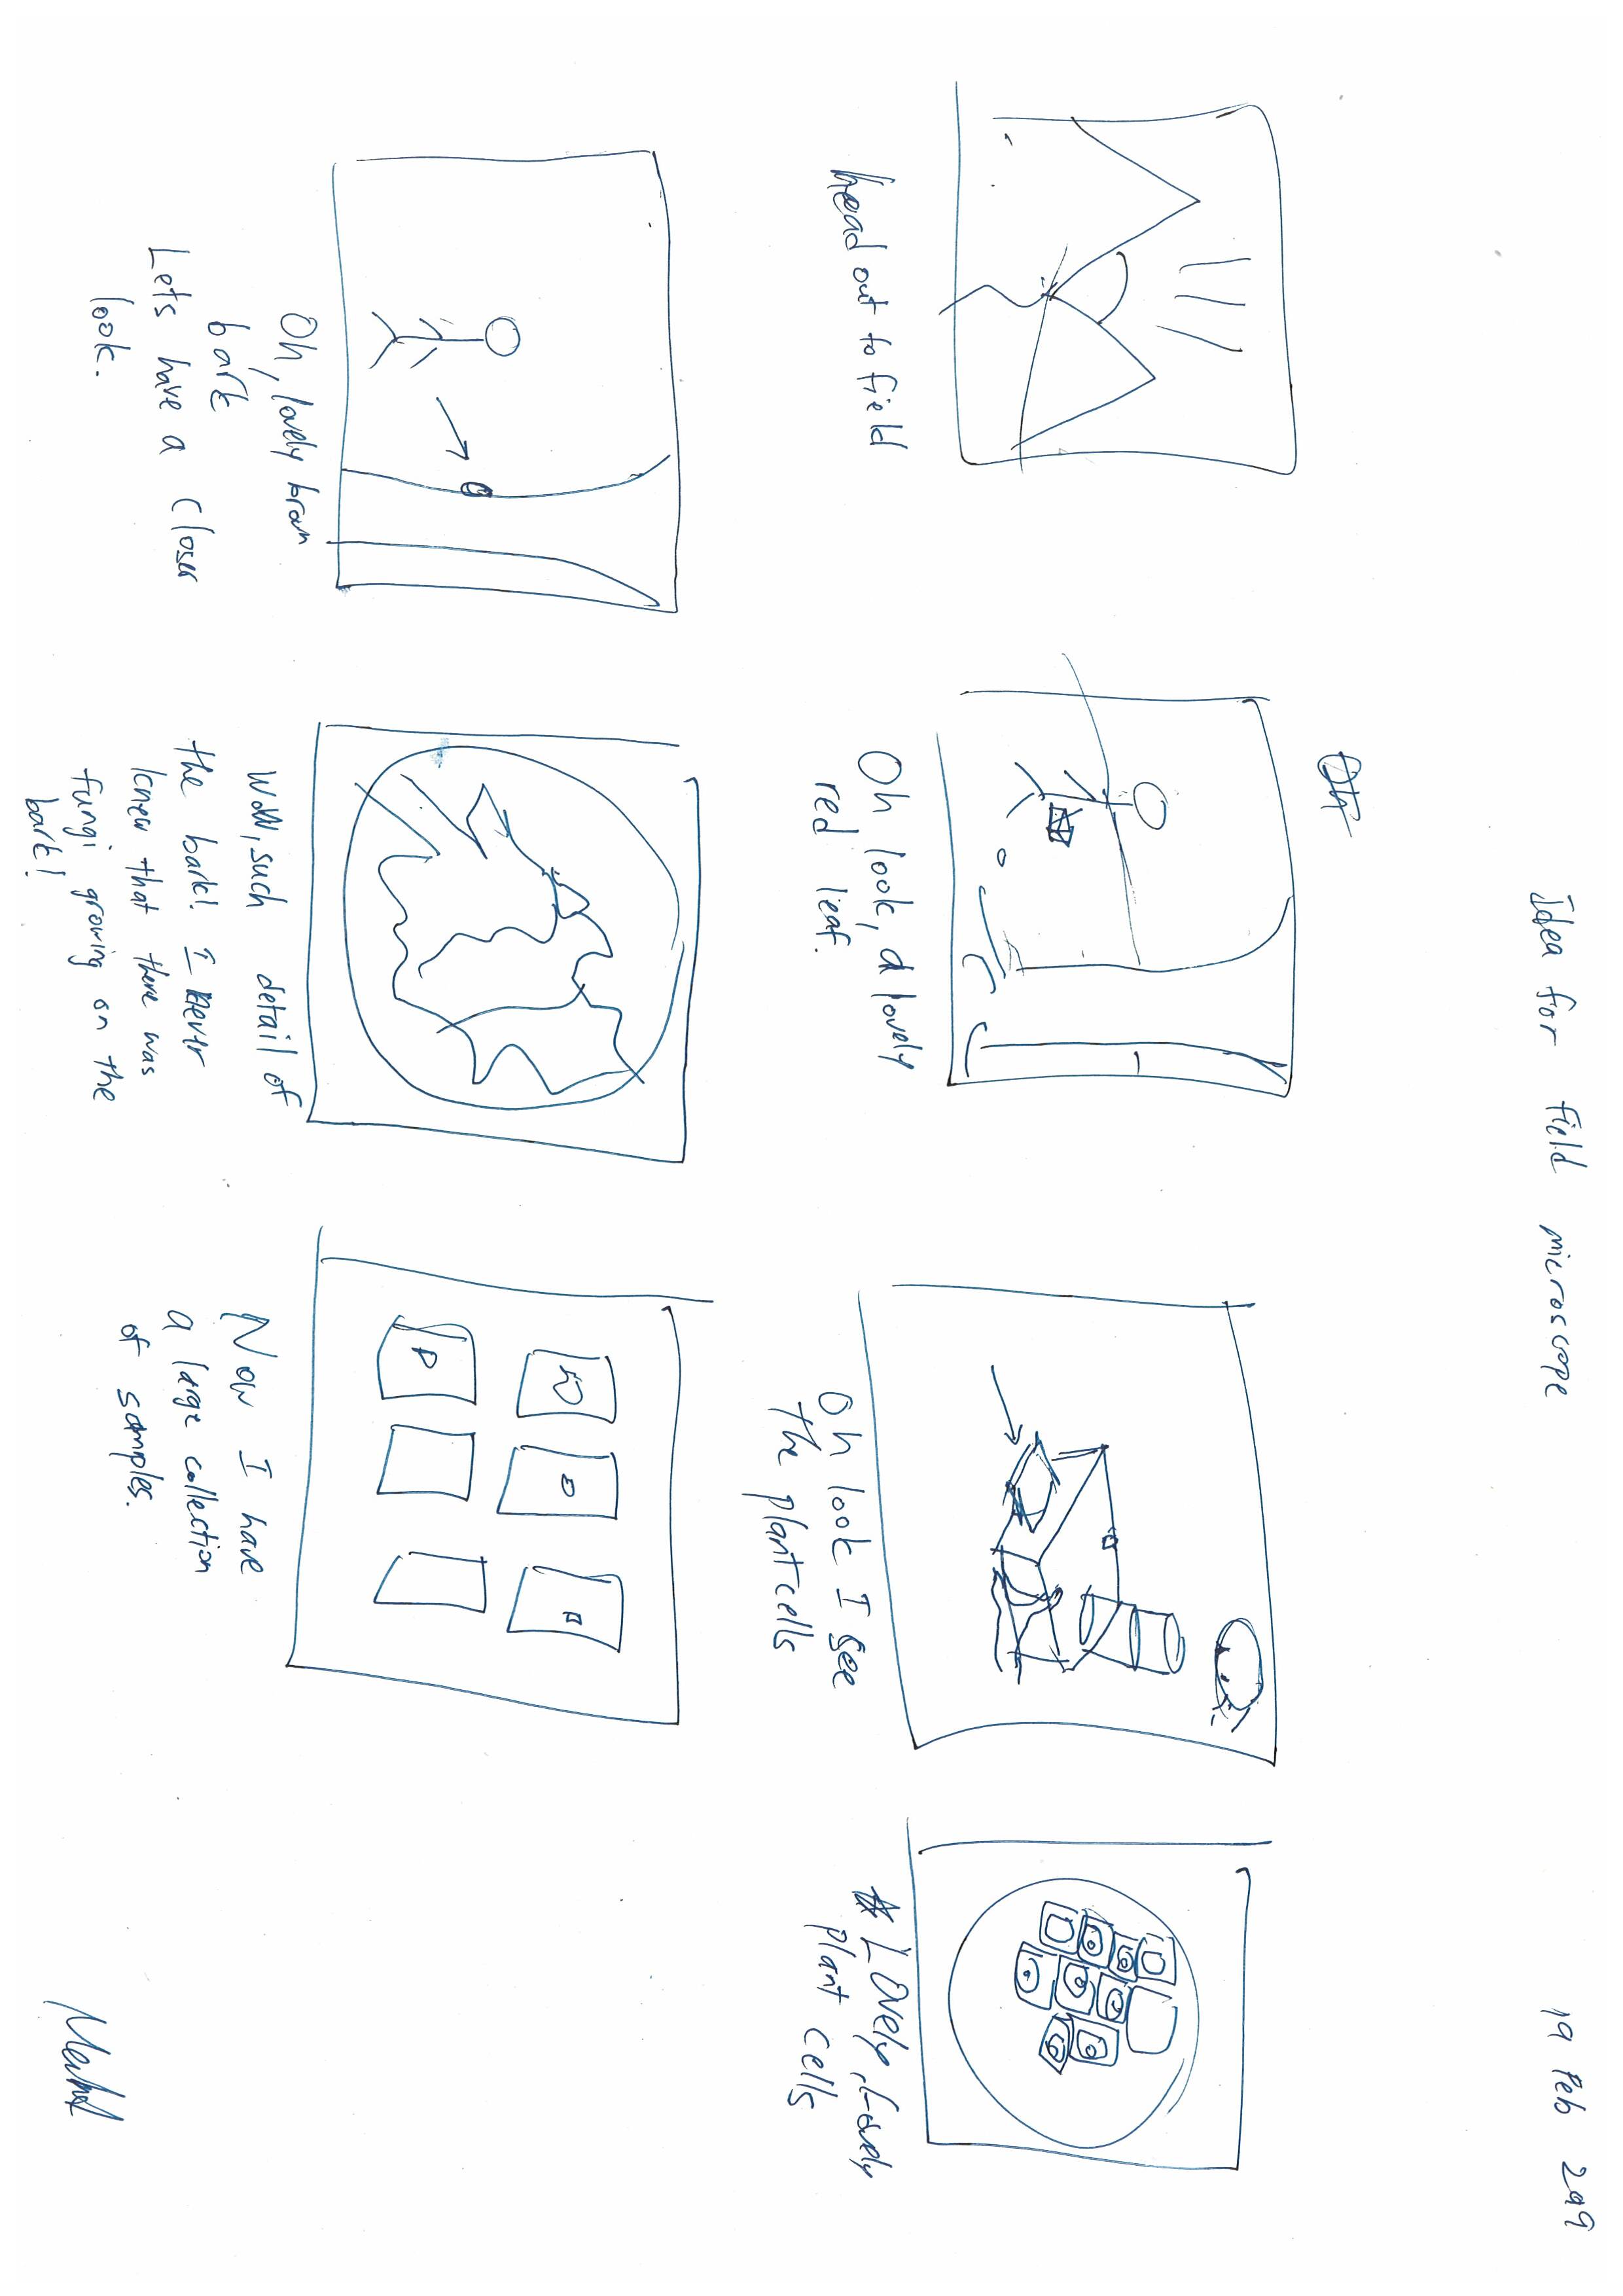 Idea for field microscope
19 Feb
head out to field
Oh look, a lovely
red leaf.
Oh look I see
the plant cells
Lovely, Lovely
plant cells
Oh, lovely brown
bark
Lets have a closer
look.
Wow, such detail of
the bark! I never
knew that there was
fungi growing on the
bark!
Now I have
a large collection
of samples.